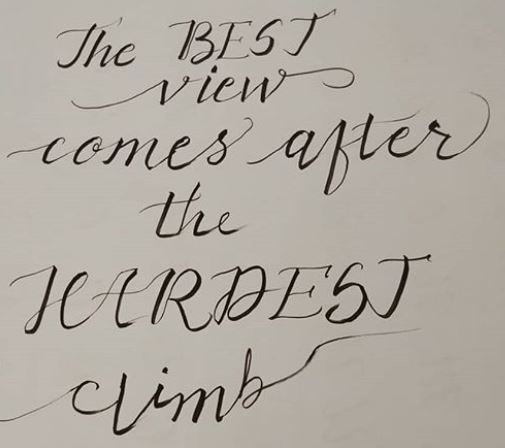 The BEST
view
comes after
the
HARDEST
climb